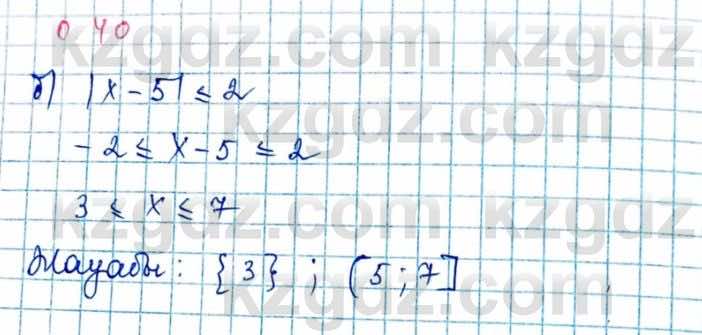 0 40
kzgdz.com kzgdz
б) |x - 5| ≤ 2
kzgdz.com kzgdz
-2 ≤ x - 5 ≤ 2
3 ≤ x ≤ 7
kzgdz.com kzgdz
Жауабы: {3} ; (5; 7]
kzgdz.com kzgdz